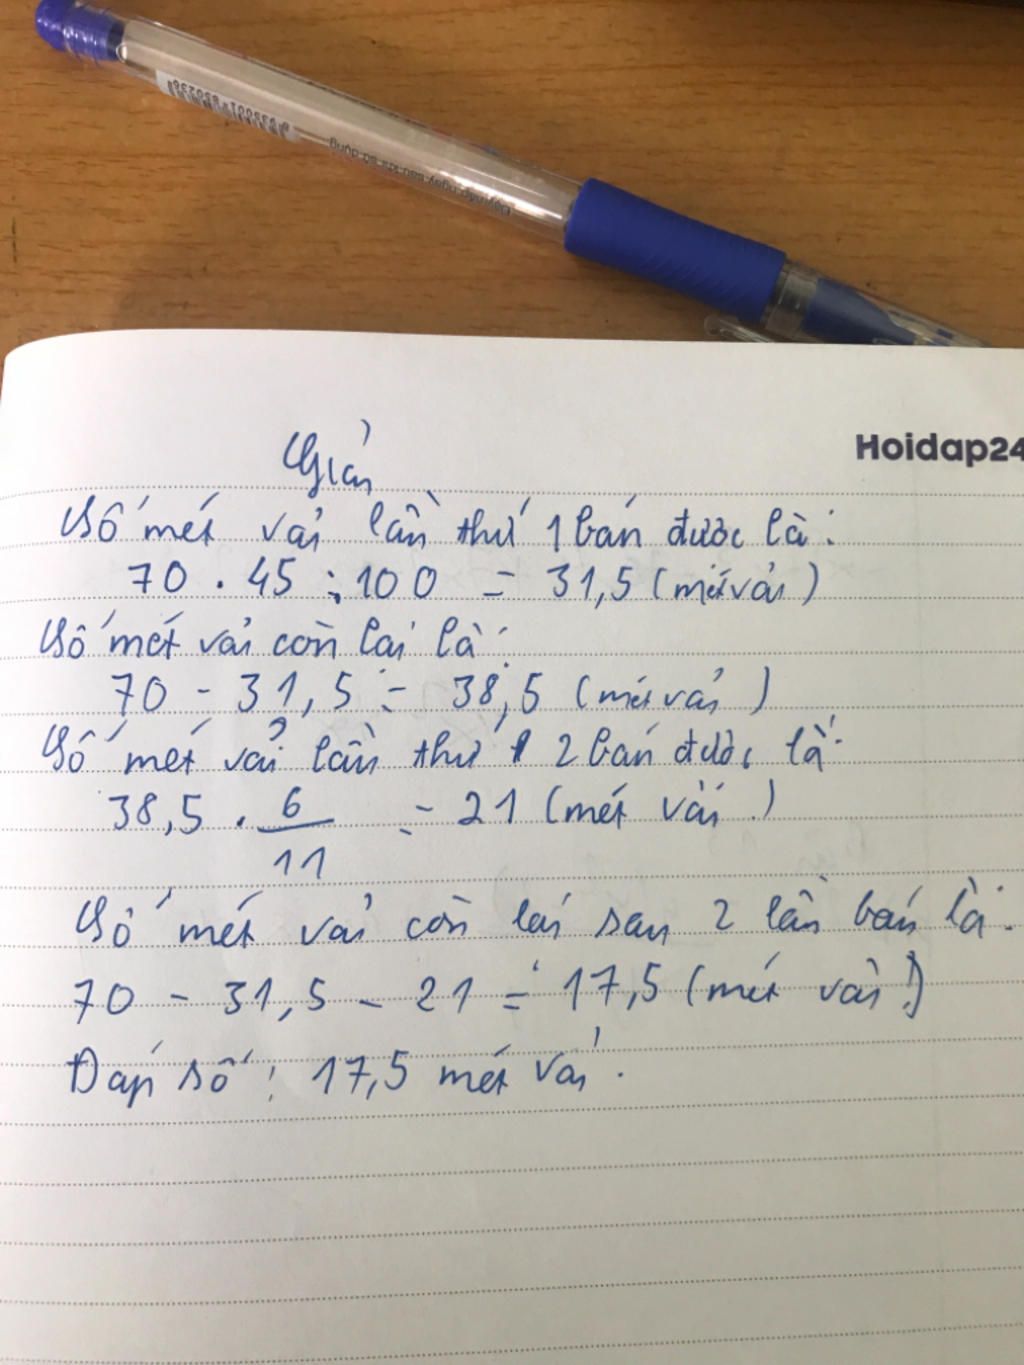 8935001850236
Đậy nắp ngay sau khi sử dụng
Hoidap24
Giải
Số mét vải lần thứ 1 bán được là:
70 . 45 : 100 = 31,5 (mét vải)
Số mét vải còn lại là:
70 - 31,5 = 38,5 (mét vải)
Số mét vải lần thứ 2 bán được là:
38,5 . 6/11 = 21 (mét vải)
Số mét vải còn lại sau 2 lần bán là:
70 - 31,5 - 21 = 17,5 (mét vải)
Đáp số: 17,5 mét vải.